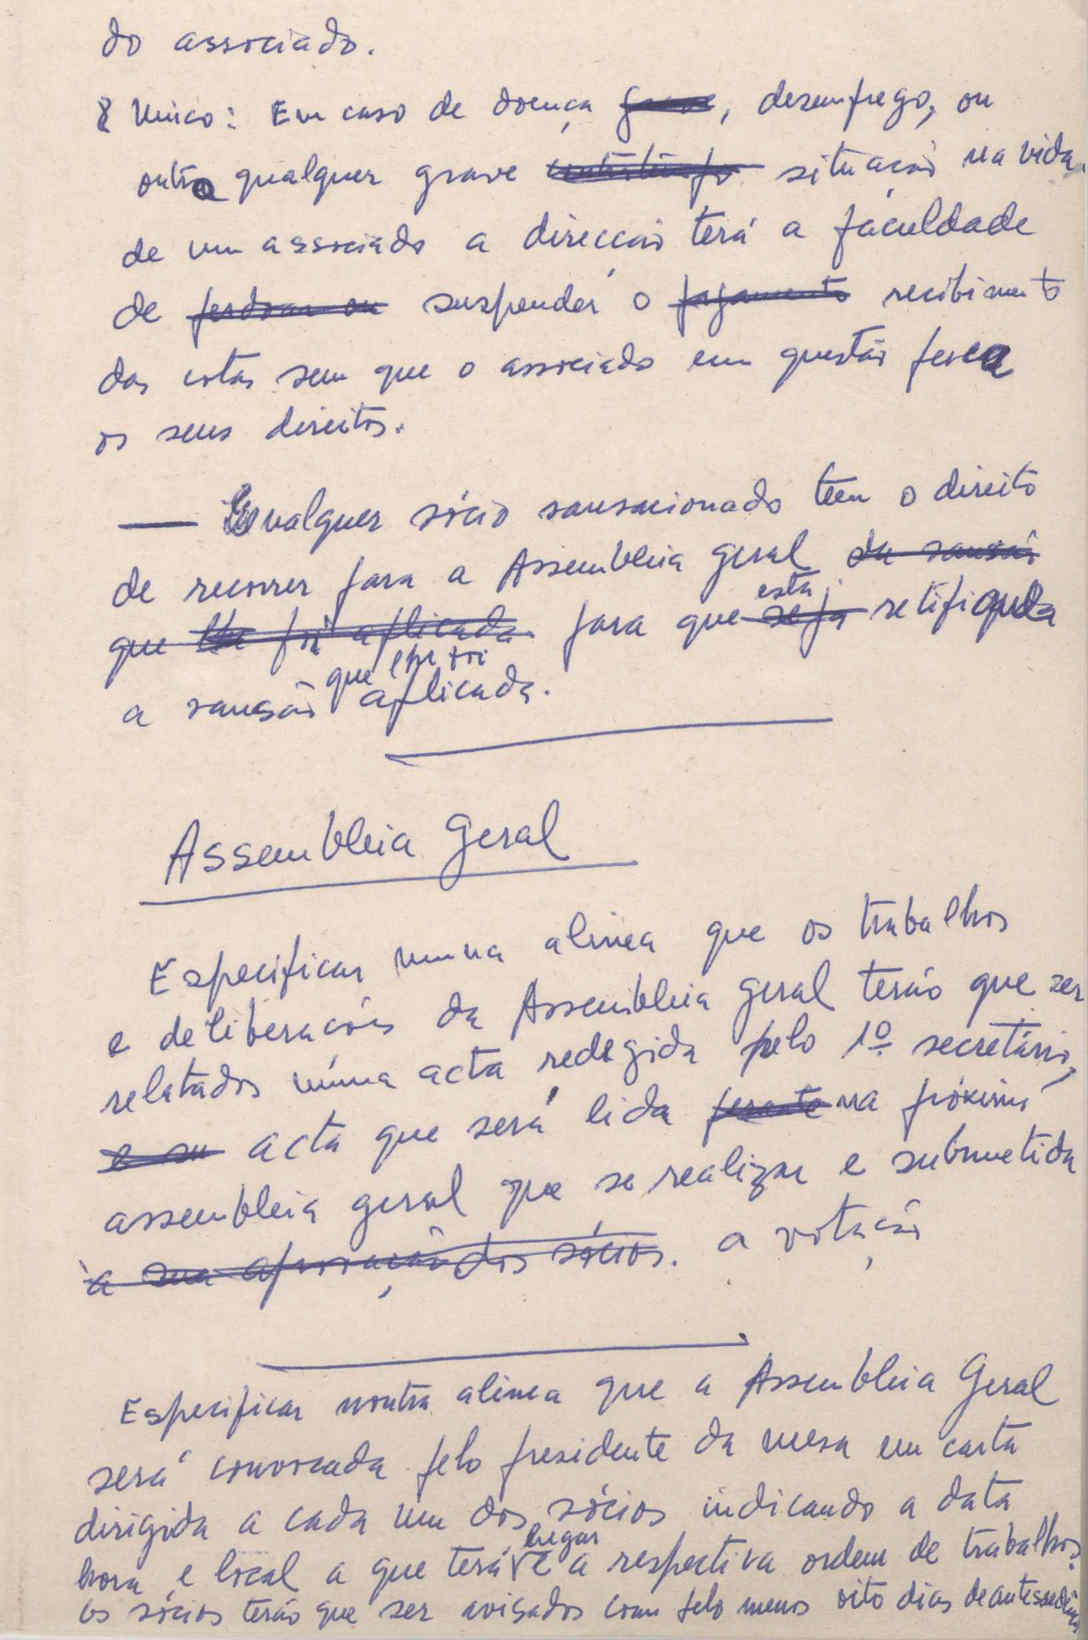 do associado.
§ Unico: Em caso de doença grave, desemprego, ou
outra qualquer grave situação na vida
de um associado a direcção terá a faculdade
de perdoar ou suspender o pagamento recibimento
das cotas sem que o associado em questão perca
os seus direitos.
— Qualquer sócio sansacionado tem o direito
de recorrer para a Assembleia geral da sansão
que lhe foi aplicada para que seja esta retifiquda
a sansão que lhe foi aplicada.
Assembleia Geral
Especificar numa alinea que os trabalhos
e deliberações da Assembleia geral terão que ser
relatados númа acta redegida pelo 1º secretário,
e su acta que será lida perante na próxima
assembleia geral que se realizar e submetida
à sua aprovação dos sócios. a votação
Especificar noutra alinea que a Assembleia Geral
será convocada pelo presidente da mesa em carta
dirigida a cada um dos sócios indicando a data
hora e local a que terá lugar e a respectiva ordem de trabalhos.
Os sócios terão que ser avisados com pelo menos oito dias de